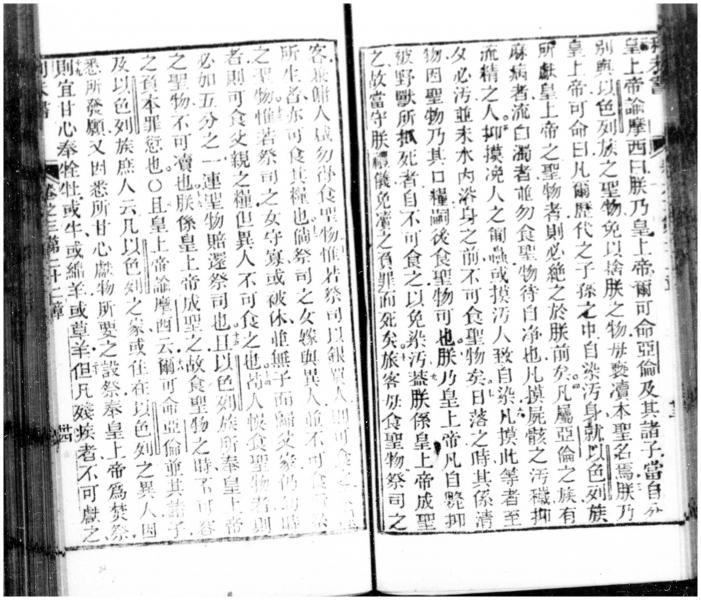 皇上帝諭摩西曰朕乃皇上帝爾可命亞倫及其諸子當自分
別與以色列族之聖物免以捨朕之物毋褻瀆本聖名焉朕乃
皇上帝可命曰凡爾歷代之子孫之中自染污身就以色列族
所獻皇上帝之聖物者則必絶之於朕前矣凡屬亞倫之族有
麻病者流白濁者並勿食聖物待自净也凡摸屍骸之污穢抑
流精之人抑摸凂人之匍蟲或摸污人致自染凡摸此等者至
夕必污並未水內浴身之前不可食聖物矣日落之時其係清
物因聖物乃其口糧嗣後食聖物可也朕乃皇上帝凡自斃抑
被野獸所抓死者自不可食之以免染污蓋朕係皇上帝成聖
之故當守朕禮儀免瀆之負罪而死矣旅客毋食聖物祭司之
客兼傭人咸勿得食聖物惟若祭司以銀買人則可食之
所生者亦可食其糧也倘祭司之女嫁與異人並不可食祭
之聖物惟若祭司之女守寡或被休並無子而歸父家仍幼時
者則可食父親之糧但異人不可食之也倘人悞食聖物者則
必如五分之一連聖物賠還祭司也且以色列族所奉皇上帝
之聖物不可瀆也朕係皇上帝成聖之故食聖物之時不可容
之負本罪愆也〇且皇上帝諭摩西云爾可命亞倫並其諸子
及以色列族庶人云凡以色列之家或住在以色列之異人因
悉所發願又因悉所甘心獻物所要之設祭奉皇上帝爲焚祭
十九則宜甘心奉牷牡或牛或綿羊或草羊但凡殘疾者不可獻之
利未書 卷之三第二十二章